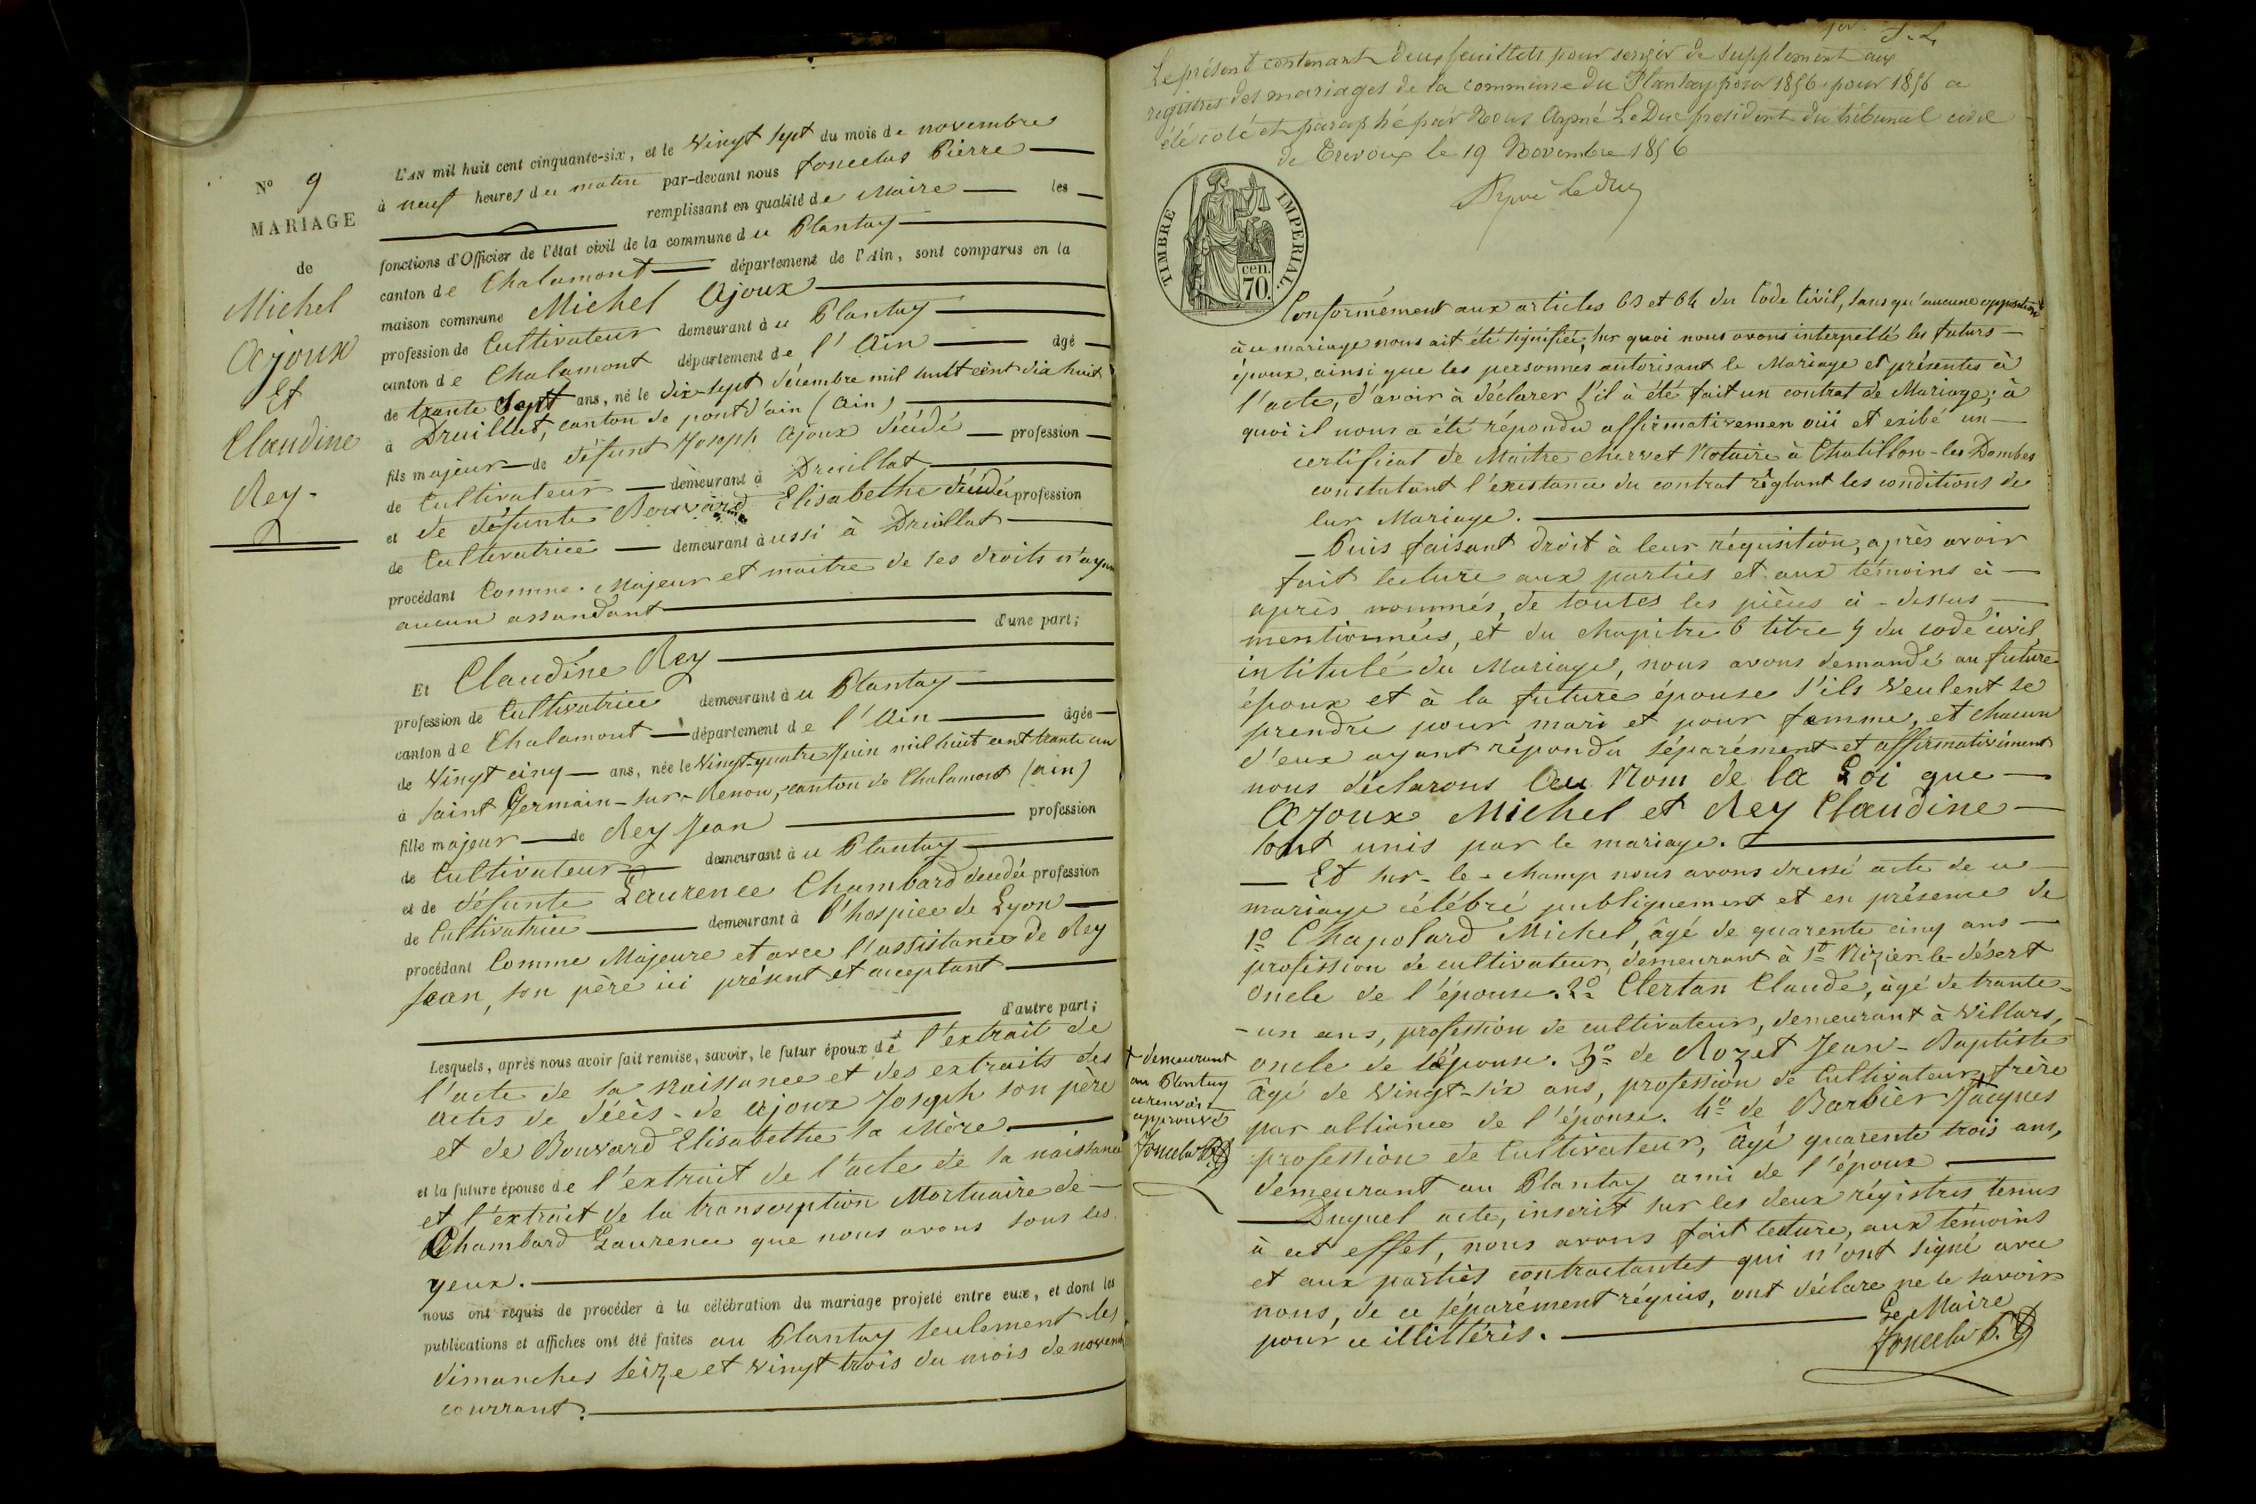 N° 9
MARIAGE
de
Michel
Ajoux
Et
Claudine
Rey.
L'AN mil huit cent cinquante-six, et le Vingt Sept du mois de novembre
à neuf heures du matin par-devant nous Foncelus Pierre
remplissant en qualité de Maire les
fonctions d'Officier de l'état civil de la commune du Plantay
canton de Chalamont département de l'Ain, sont comparus en la
maison commune Michel Ajoux
profession de Cultivateur demeurant à u Plantay
canton de Chalamont département de l'Ain âgé
de trante Sept ans, né le dix-sept décembre mil huit cent dix huit
à Druillat, canton de pont d'ain (Ain)
fils majeur de défunt Joseph Ajoux décédé profession
de Cultivateur demeurant à Druillat
et de défunte Bouvard Elisabethe décédée profession
de Cultivatrice demeurant à ussi à Druillat
procédant Comme Majeur et maitre de ses droits n'ayan
aucun assandant
d'une part;
Et Claudine Rey
profession de Cultivatrice demeurant à u Plantay
canton de Chalamont département de l'Ain âgée
de Vingt cinq ans, née le Vingt-quatre Juin mil huit cent trante un
à Saint Germain-sur-Renon, canton de Chalamont (Ain)
fille majeur de Rey Jean profession
de Cultivateur demeurant à u Plantay
et de défunte Laurence Chambard décédée profession
de Cultivatrice demeurant à l'hospice de Lyon
procédant Comme Majeure et avec l'assistance de Rey
Jean, son père ici présent et acceptant
d'autre part;
Lesquels, après nous avoir fait remise, savoir, le futur époux de l'extrait de
l'acte de sa naissance et des extraits des
actes de décès de Ajoux Joseph son père
et de Bouvard Elisabethe sa Mère.
et la future épouse de l'extrait de l'acte de sa naissance
et l'extrait de la transcription Mortuaire de
Chambard Laurence que nous avons sous les
yeux.
nous ont requis de procéder à la célébration du mariage projeté entre eux, et dont les
publications et affiches ont été faites au Plantay seulement les
dimanches seize et vingt trois du mois de novem
courrant.
Le présent contenant deux feuillets pour servir de supplément aux
registres des mariages de la commune du Plantay pour 1856 pour 1856 a
été coté et paraphé par Nous Aymé Le Duc president du tribunal civil
de Trevoux le 19 Novembre 1856
Aymé Le Duc
TIMBRE IMPERIAL.
70. cen.
Conformément aux articles 63 et 64 du Code Civil, sans qu'aucune opposition
à ce mariage nous ait été signifiée, sur quoi nous avons interpellé les futurs
époux, ainsi que les personnes autorisant le Mariage et présentes à
l'acte, d'avoir à déclarer s'il à été fait un contrat de Mariage; à
quoi il nous a été répondu affirmativemen oüi et exibé un
certificat de Maitre chervet Notaire à Chatillon-les-Dombes
constatant l'existance du contrat réglant les conditions de
lur Mariage.
Puis faisant droit à leur réqusition, après avoir
fait lecture aux parties et aux témoins ci
après nommés, de toutes les pièces ci-dessus
mentionnées, et du chapitre 6 titre 5 du code civil
intitulé du Mariage, nous avons demandé au future
époux et à la future épouse s'ils veulent se
prendre pour mari et pour femme, et chacun
d'eux ayant répondu séparément et affirmativement
nous déclarons Au Nom de la Loi que
Ajoux Michel et Rey Claudine
sont unis par le mariage.
Et sur-le-champ nous avons dressé acte de ce
mariage célébré publiquement et en présence de
1° Chapolard Michel, âgé de quarente cinq ans
profission de cultivateur, demeurant à St Nizier-le-désert
Oncle de l'épouse. 2° Clertan Claude, âgé de trante-
-un ans, profession de cultivateur, demeurant à Villars,
oncle de l'épouse. 3° de Rozet Jean-Baptiste
âgé de Vingt-six ans, profession de Cultivateur, frère
par alliance de l'épouse. 4° de Barbier Jacques
profession de Cultivateur, âgé quarente trois ans,
demeurant au Plantay ami de l'époux
Duquel acte, inscrit sur les deux régistres tenus
à cet effet, nous avons fait lecture, aux témoins
et aux parties contractantes qui n'ont signé avec
nous, de ce séparément réquis, ont déclare ne le savoir
pour ce illittérés.
Le Maire
Foncelus P.
+ demeurant
au Plantay
ce renvoi
approuvé
Foncelus P.